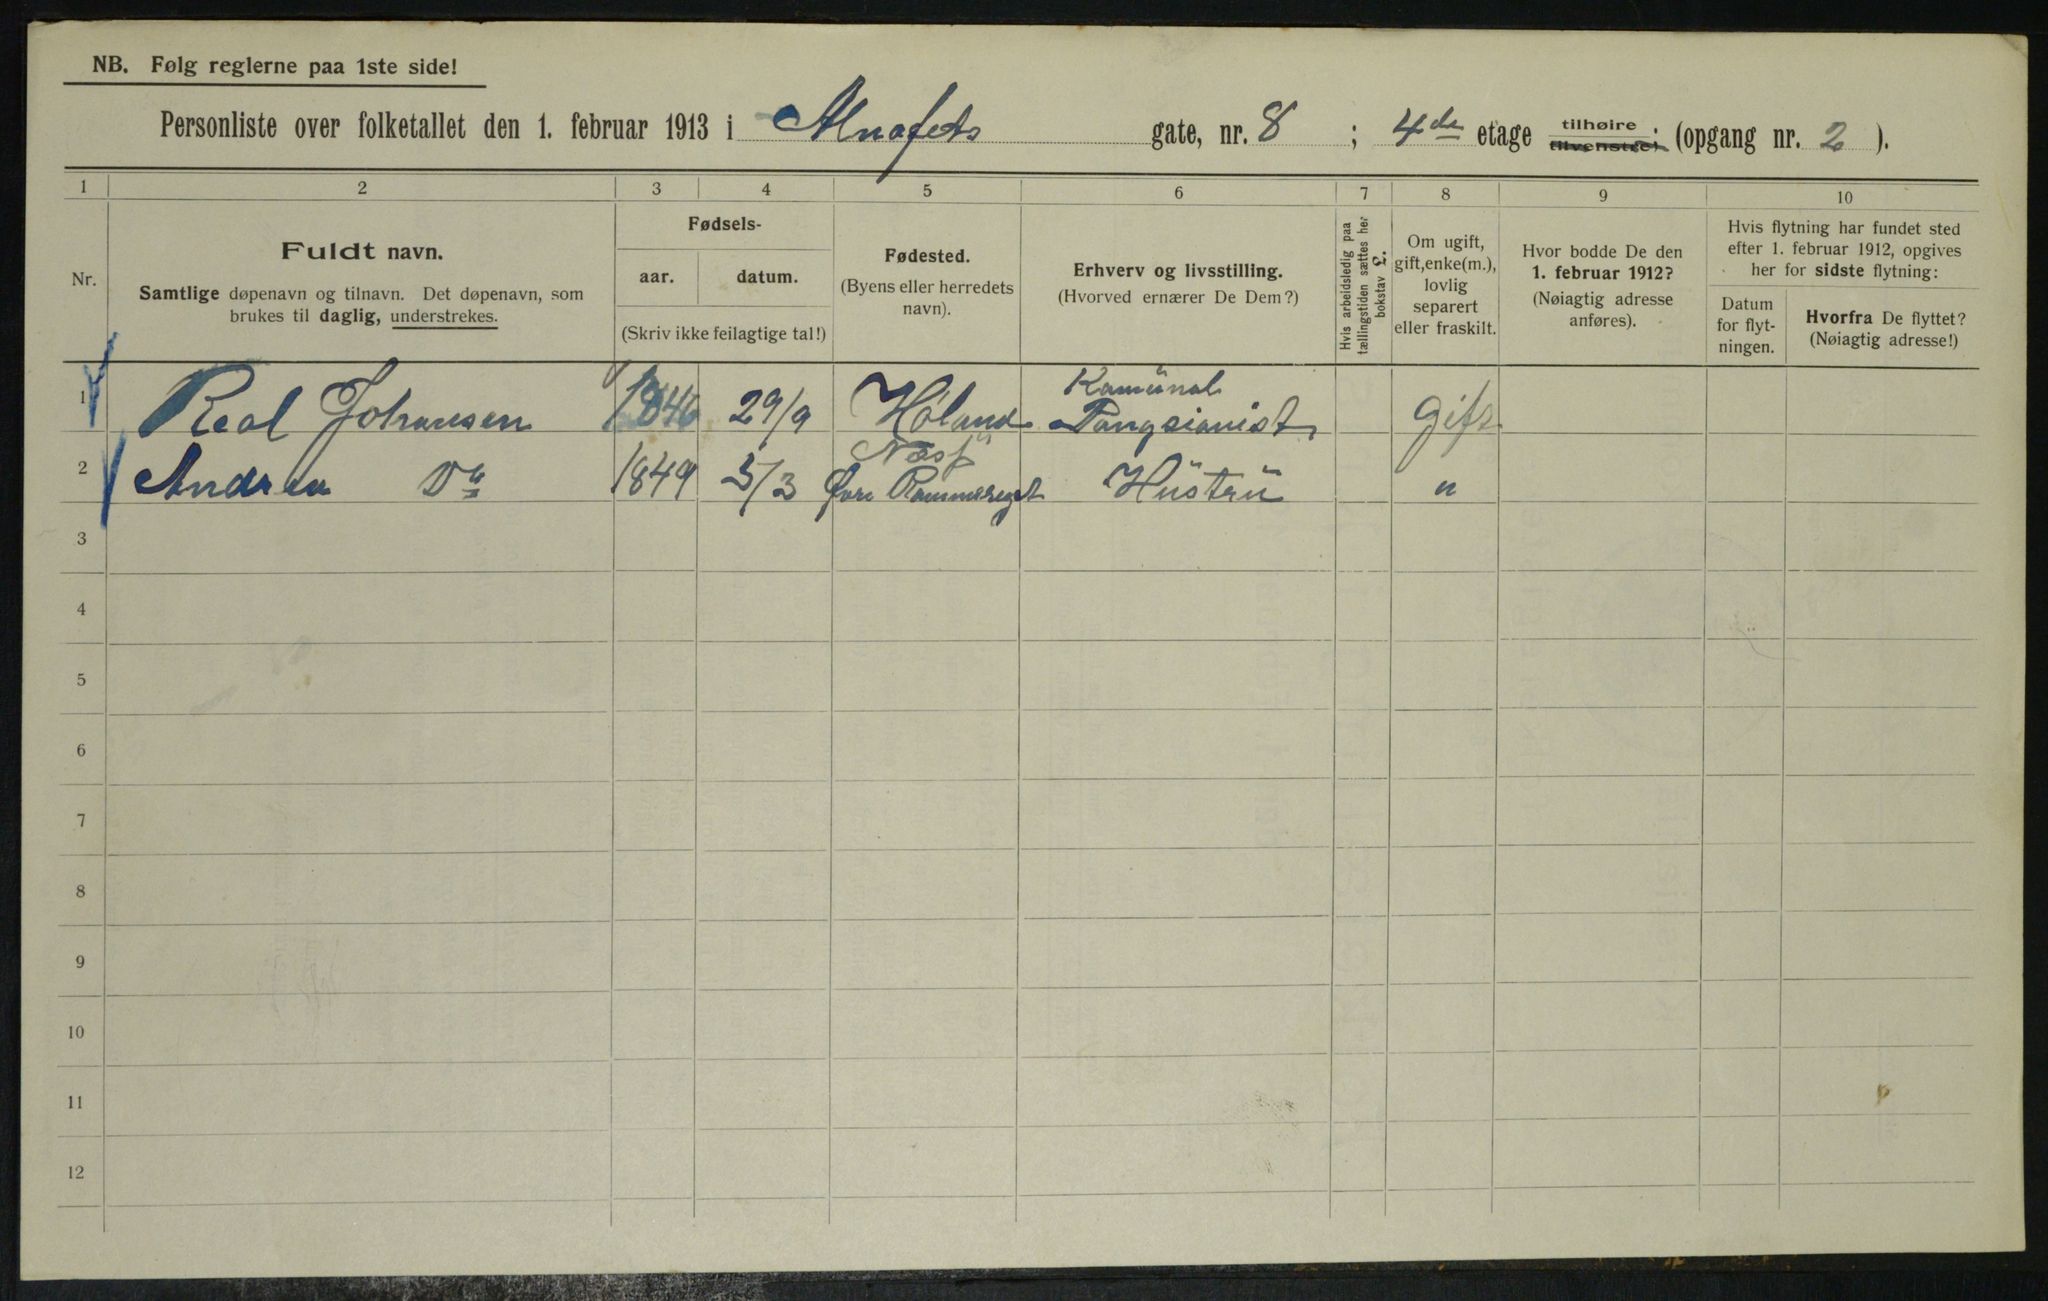 NB. Følg reglerne paa 1ste side!
Personliste over folketallet den 1. februar 1913 i Alnafets gate, nr. 8 ; 4de etage tilhøire tilvenstre; (opgang nr. 2 ).
1 2 3 4 5 6 7 8 9 10
Nr.
Fuldt navn.
Samtlige døpenavn og tilnavn. Det døpenavn, som
brukes til daglig, understrekes.
Fødsels-
aar. datum.
(Skriv ikke feilagtige tal!)
Fødested.
(Byens eller herredets
navn).
Erhverv og livsstilling.
(Hvorved ernærer De Dem?)
Hvis arbeidsledig paa
tællingstiden sættes her
bokstav L.
Om ugift,
gift, enke(m.),
lovlig
separert
eller fraskilt.
Hvor bodde De den
1. februar 1912?
(Nøiagtig adresse
anføres).
Hvis flytning har fundet sted
efter 1. februar 1912, opgives
her for sidste flytning:
Datum
for flyt-
ningen.
Hvorfra De flyttet?
(Nøiagtig adresse!)
Kamünal
1 Real Johansen 1846 29/9 Høland Pangsianist gift
2 Andrea Do 1849 5/3 Øvre Hüstrü "
3
4
5
6
7
8
9
10
11
12